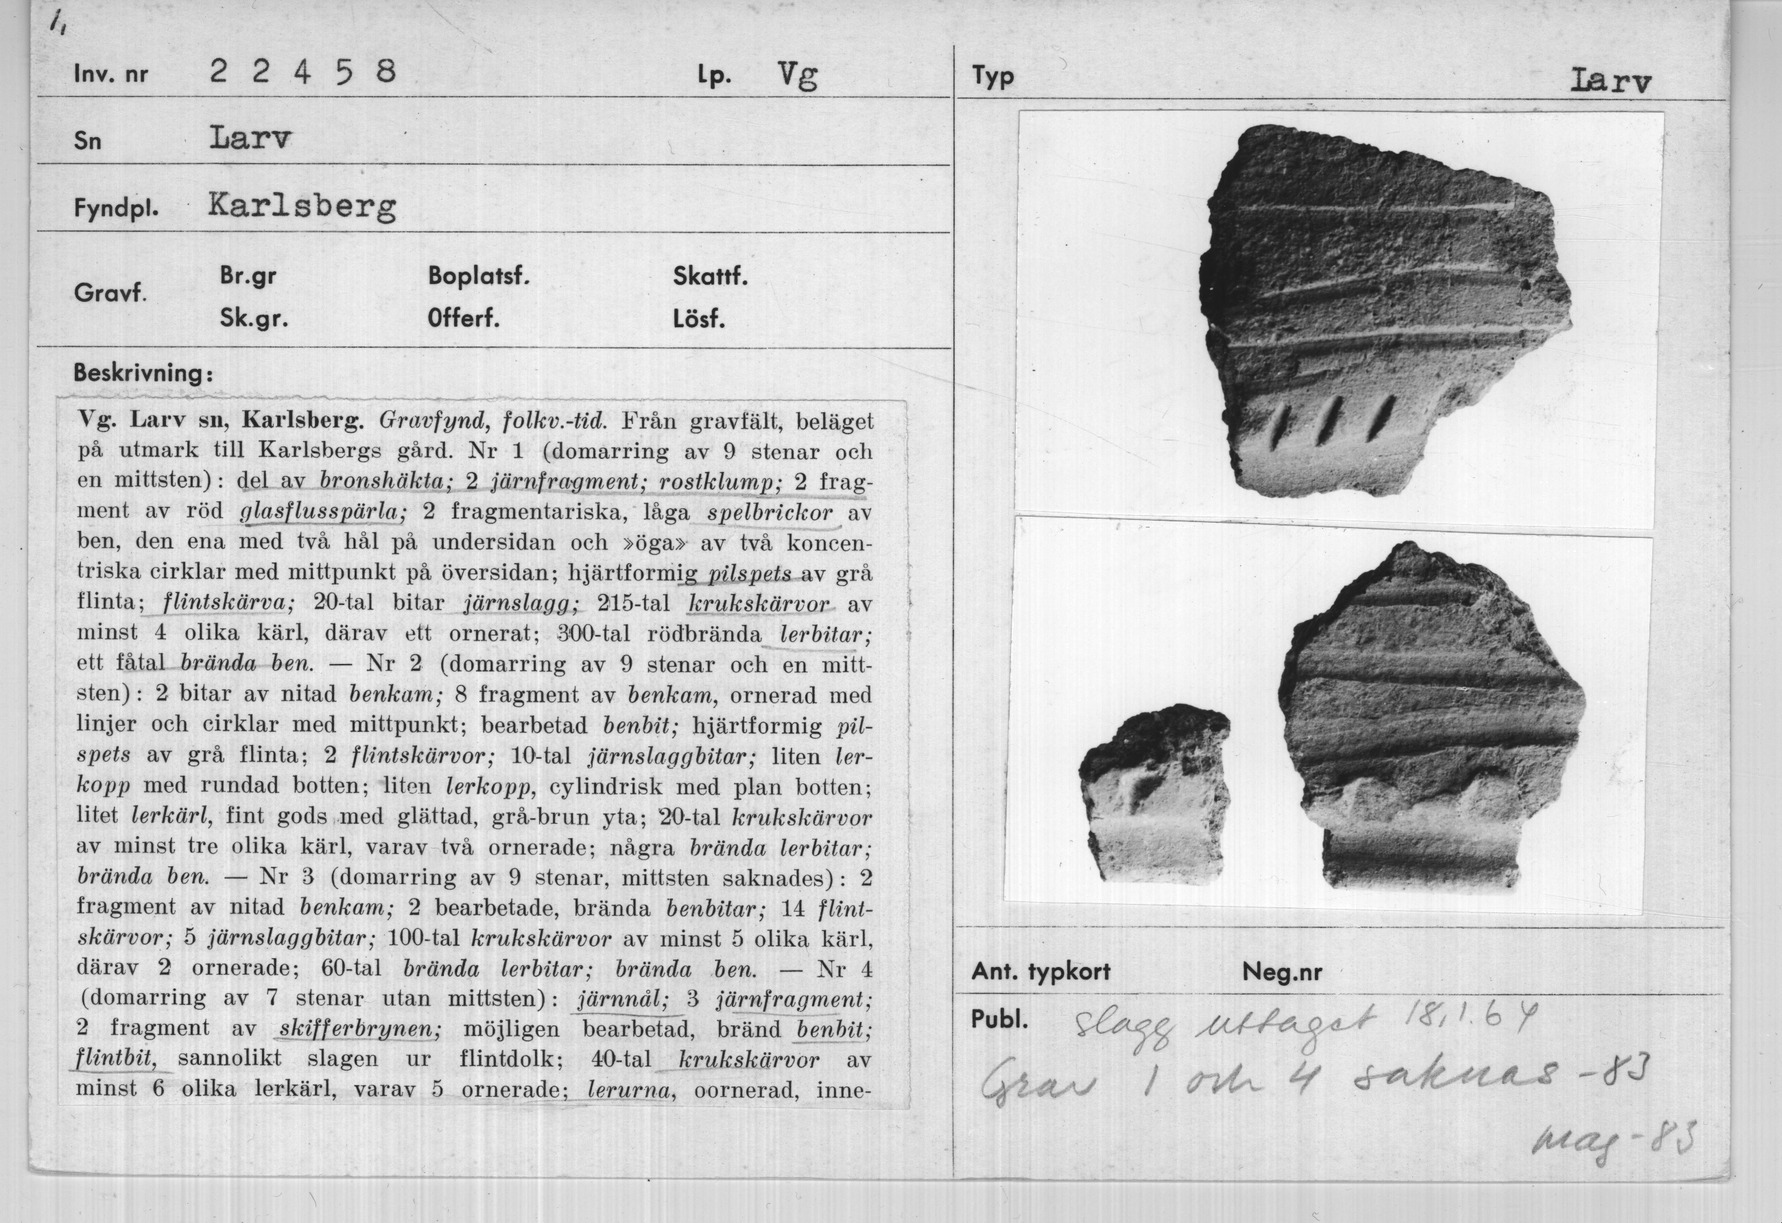 1,
Inv. nr 22458 Lp. Vg
Sn Larv
Fyndpl. Karlsberg
Gravf. Br.gr Boplatsf. Skattf.
Sk.gr. Offerf. Lösf.
Beskrivning:
Vg. Larv sn, Karlsberg. Gravfynd, folkv.-tid. Från gravfält, beläget
på utmark till Karlsbergs gård. Nr 1 (domarring av 9 stenar och
en mittsten): del av bronshäkta; 2 järnfragment; rostklump; 2 frag-
ment av röd glasflusspärla; 2 fragmentariska, låga spelbrickor av
ben, den ena med två hål på undersidan och »öga» av två koncen-
triska cirklar med mittpunkt på översidan; hjärtformig pilspets av grå
flinta; flintskärva; 20-tal bitar järnslagg; 215-tal krukskärvor av
minst 4 olika kärl, därav ett ornerat; 300-tal rödbrända lerbitar;
ett fåtal brända ben. — Nr 2 (domarring av 9 stenar och en mitt-
sten): 2 bitar av nitad benkam; 8 fragment av benkam, ornerad med
linjer och cirklar med mittpunkt; bearbetad benbit; hjärtformig pil-
spets av grå flinta; 2 flintskärvor; 10-tal järnslaggbitar; liten ler-
kopp med rundad botten; liten lerkopp, cylindrisk med plan botten;
litet lerkärl, fint gods med glättad, grå-brun yta; 20-tal krukskärvor
av minst tre olika kärl, varav två ornerade; några brända lerbitar;
brända ben. — Nr 3 (domarring av 9 stenar, mittsten saknades): 2
fragment av nitad benkam; 2 bearbetade, brända benbitar; 14 flint-
skärvor; 5 järnslaggbitar; 100-tal krukskärvor av minst 5 olika kärl,
därav 2 ornerade; 60-tal brända lerbitar; brända ben. — Nr 4
(domarring av 7 stenar utan mittsten): järnnål; 3 järnfragment;
2 fragment av skifferbrynen; möjligen bearbetad, bränd benbit;
flintbit, sannolikt slagen ur flintdolk; 40-tal krukskärvor av
minst 6 olika lerkärl, varav 5 ornerade; lerurna, oornerad, inne-
Typ Larv
Ant. typkort Neg.nr
Publ. slagg uttaget 18.1.64
Grav 1 och 4 saknas -83
mag -83